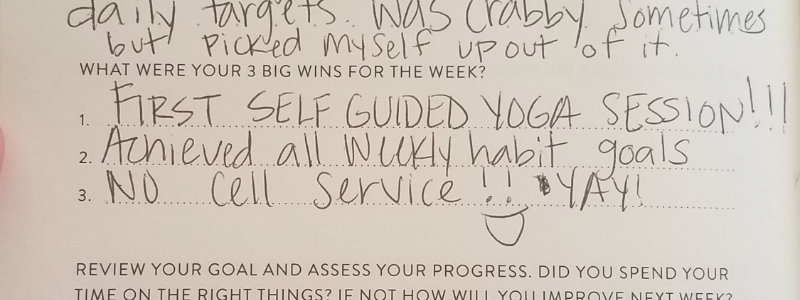 daily targets. Was Crabby Sometimes
but picked myself up out of it.
WHAT WERE YOUR 3 BIG WINS FOR THE WEEK?
1. FIRST SELF GUIDED YOGA SESSION!!!
2. Achieved all Weekly habit goals
3. NO Cell Service!! YAY!
REVIEW YOUR GOAL AND ASSESS YOUR PROGRESS. DID YOU SPEND YOUR
TIME ON THE RIGHT THINGS? IF NOT HOW WILL YOU IMPROVE NEXT WEEK?